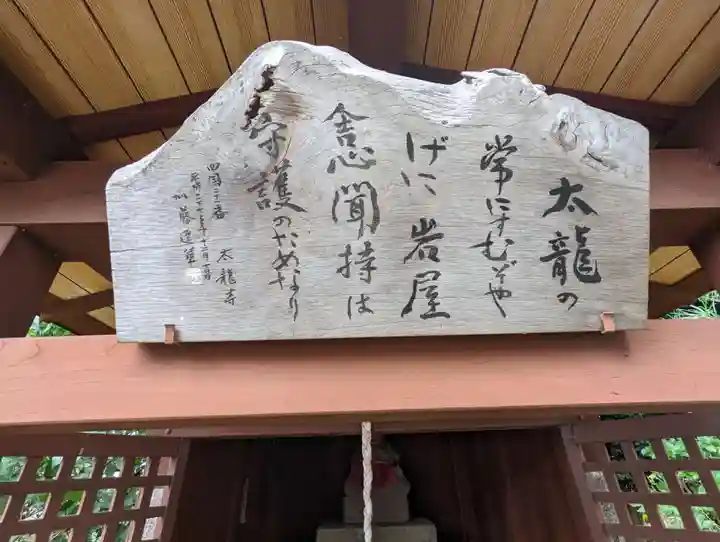 太龍の
常にすむぞや
げに岩屋
舎心聞持は
守護のためなり
四国二十一番 太龍寺